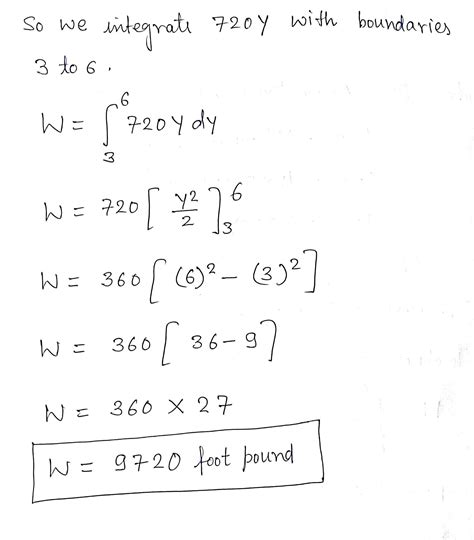 So we integrate 720y with boundaries
3 to 6.
W = ∫₃⁶ 720y dy
W = 720 [ y²/2 ]₃⁶
W = 360 [ (6)² – (3)² ]
W = 360 [ 36 – 9 ]
W = 360 × 27
W = 9720 foot pound